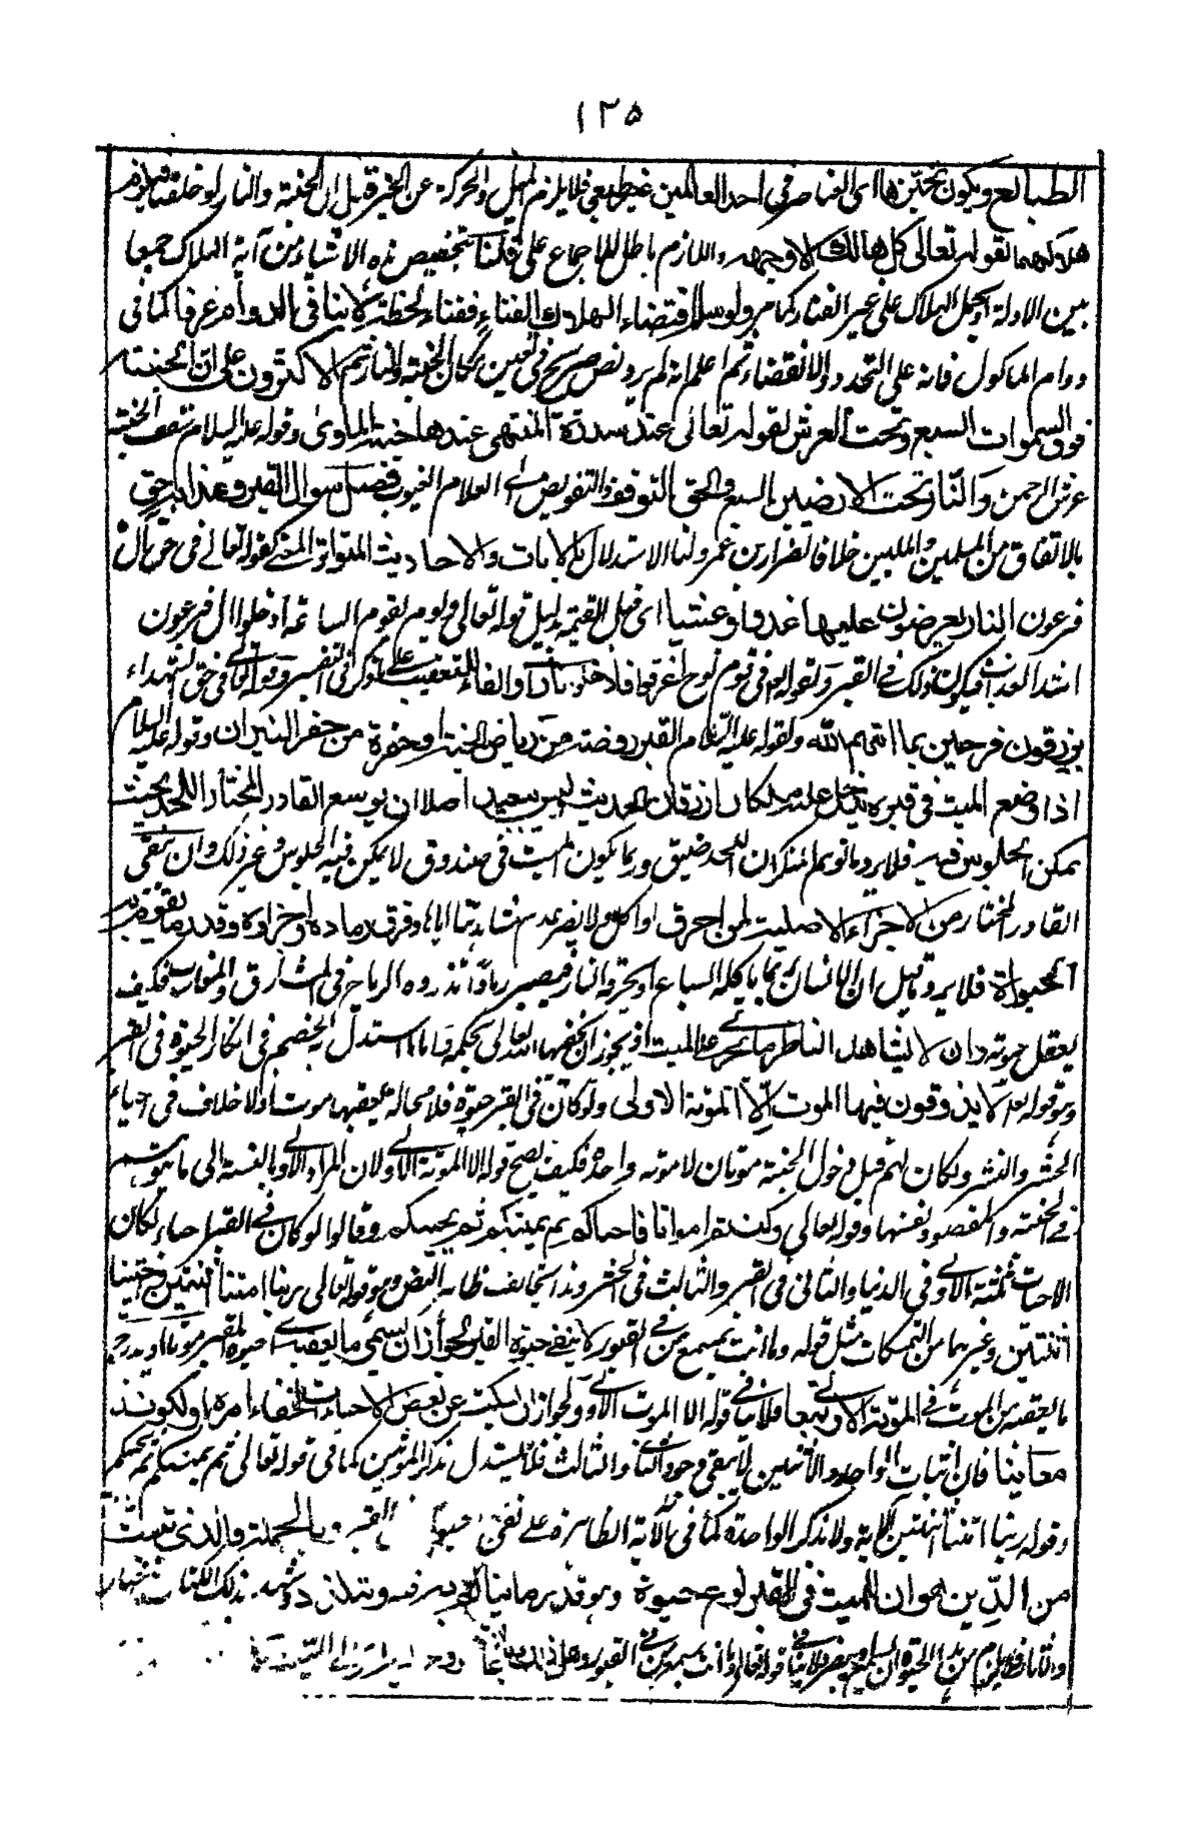 ١٢٥
الطبائع ويكون تحيز هااى العناصر فى احد العالمين غير طبيعى فلا يلزم الميل والحركة عن الحيز قيل ان الجنة والنار لو خلقتا
هلاكهما لقوله تعالى كل هالك الا وجهه واللازم باطل للاجماع على قلنا تخصيص هذه الاشياء من آية الهلاك جمعا
بين الادلة او يحمل الهلاك على غير الفناء كما مر ولو سلم اقتضاء الهلاك الفناء ففناء لحظة لا ينافى الدوام عرفا كما فى
دوام الماكول فانه على التجدد والانقضاء ثم اعلم انه لم يرد نص صريح فى تعين مكان الجنة والنار ثم الاكثرون على ان الجنة
فوق السموات السبع وتحت العرش لقوله تعالى عند سدرة المنتهى عندها جنة الماوى وقوله عليه السلام سقف الجنة
عرش الرحمن والنار تحت الارضين السبع والحق التوقف والتفويض الى العلام الغيوب فصل سوال القبر وعذابه حق
بالاتفاق من المسلمين والمليين خلافا لضرار بن عمر ولنا الاستدلال بالايات والاحاديث المتواترة المعنى كقوله تعالى فى حق آل
فرعون النار يعرضون عليها غدوا وعشيا اى قبل القيمة بدليل قوله تعالى ويوم تقوم الساعة ادخلوا ال فرعون
اشد العذاب فيكون ذلك فى القبر ولقوله تعالى فى قوم نوح اغرقوا فادخلوا نارا والفاء للتعقيب على ما ذكر فى التفسير وقوله تعالى فى حق الشهداء
يرزقون فرحين بما اتهم الله ولقوله عليه السلام القبر روضة من رياض الجنة او حفرة من حفر النيران وقوله عليه السلام
اذا وضع الميت فى قبره يدخل عليه ملكان ازرقان الحديث ليس ببعيد اصلا ان يوسع القادر المختار اللحد بحيث
يمكن الجلوس فيه فلا يرد ما توهم المنكر ان اللحد ضيق وربما يكون الميت فى صندوق لا يمكن فيه الجلوس وغير ذلك وان يبقى
القادر المختار من الاجزاء الاصلية لمن احرق او اكل ولا يضر عدم مشاهدتنا اياها وفرق رماده واجزاؤه وقدر ما يقوم به
الحيوة فلا يرد ما قيل ان الانسان ربما ياكله السباع او يحرقه النار فيصير رمادا تذروه الرياح فى المشارق والمغارب فكيف
يعقل حيوته وان لا يشاهد الناظر ما يجرى على الميت اذ يجوز ان يخفيها الله تعالى لحكمة واما ما استدل به الخصم فى انكار الحيوة فى القبر
وهو قوله تعالى لا يذوقون فيها الموت الا الموتة الاولى ولو كان فى القبر حيوة فلا محالة يعقبها موت اذ لا خلاف فى احياء
الحشر والنشر ولكان لهم قبل دخول الجنة موتان لا موتة واحدة فكيف يصح قوله الا الموتة الاولى ولان المراد الاولى بالنسبة الى ما يتوهم
فى الجنة والمقصود نفسها وقوله تعالى وكنتم امواتا فاحياكم ثم يميتكم ثم يحييكم وقالوا لو كان فى القبر احياء لكان
الاحياءات ثلثة الاول فى الدنيا والثانى فى القبر والثالث فى الحشر وهذا يخالف ظاهر النص وهو قوله تعالى ربنا امتنا اثنتين واحييتنا
اثنتين وغيرهما من التمسكات مثل قوله وما انت بمسمع من فى القبور لا ينفى حيوة القبر لجواز ان يسمى ما يعقب حيوة القبر موتا او يدرج
ما يعقبه من الموت فى الموتة الاولى تبعا فلا ينافى قوله الا الموت الاولى ولجواز ان يسكت عن بعض الاحياءات لخفاء امره او لكونه
معاينا فان اثبات الواحد والاثنين لا ينفى وجود الثانى والثالث فلا يستدل بذكر الموتين كما فى قوله تعالى ثم يميتكم ثم يحييكم
وقوله ربنا امتنا اثنتين الاية ولا بذكر الواحدة كما فى الآية الظاهرة على نفى حيوة القبر وبالجملة فالذى ثبت
من الدين هو ان للميت فى القبر نوع حيوة وهو قدر ما يتالم به فيه ويتلذذ وشهد بذلك الكتاب
والآثار فلا يلزم من هذا الحيوة ان يسمع فلا ينافى قوله تعالى وما انت بمسمع من فى القبور وعلى